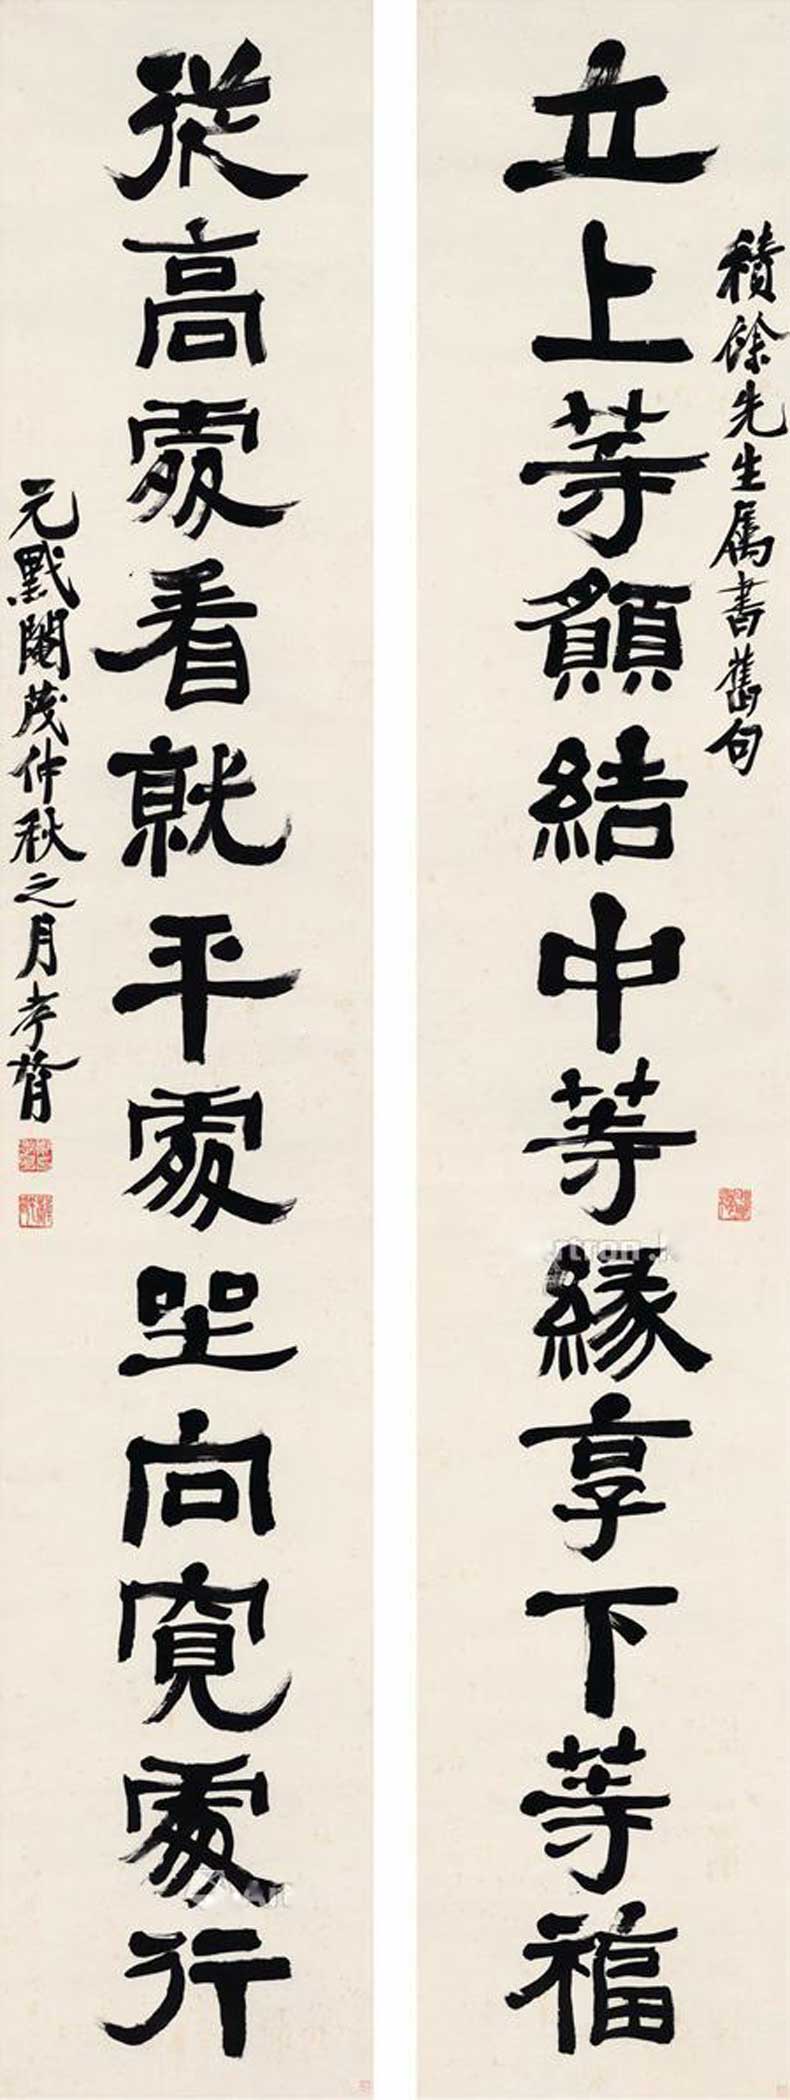 積餘先生屬書舊句
立上等願結中等緣享下等福
從高處看就平處坐向寬處行
元黓閹茂仲秋之月孝胥